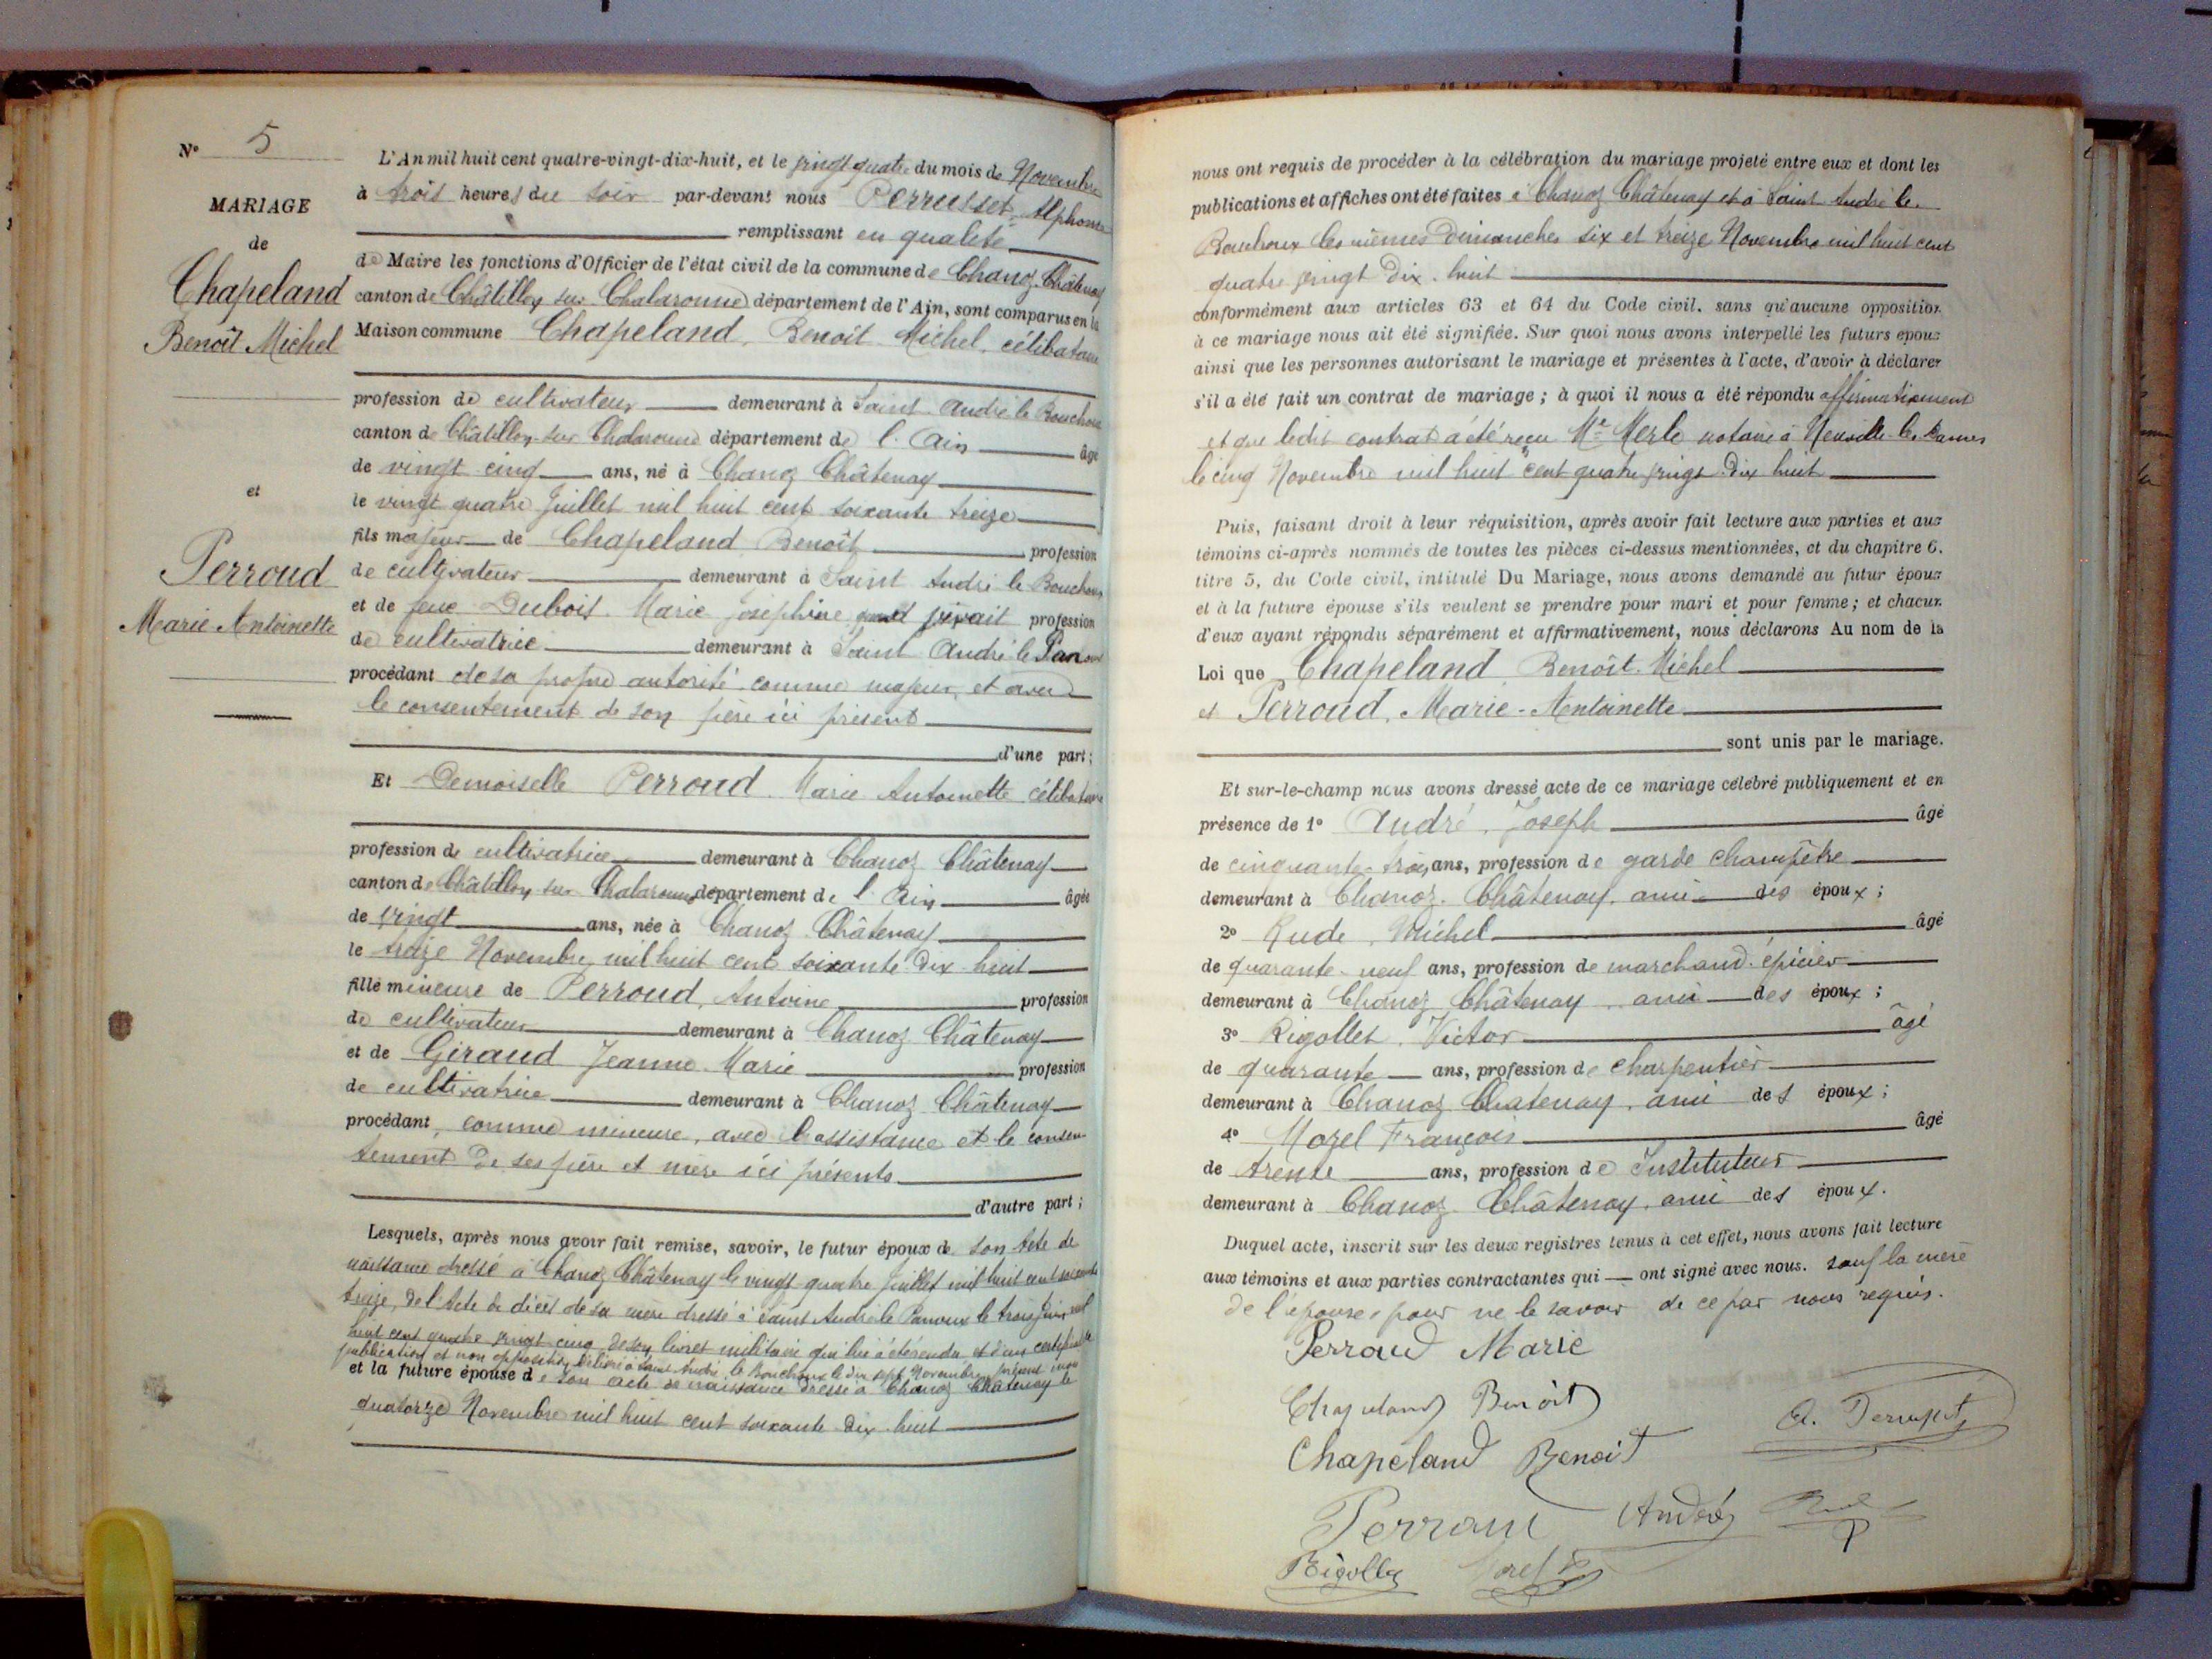 N° 5
MARIAGE
de
Chapeland
Benoît Michel
et
Perroud
Marie Antoinette
L'An mil huit cent quatre-vingt-dix-huit, et le vingt quatre du mois de Novembre
à trois heures du soir par-devant nous Perrusset, Alphonse
remplissant en qualité
de Maire les fonctions d'Officier de l'état civil de la commune de Chanoz Châtenay
canton de Châtillon sur Chalaronne département de l'Ain, sont comparus en la
Maison commune Chapeland, Benoît Michel, célibataire
profession de cultivateur demeurant à Saint André le Bouchoux
canton de Châtillon sur Chalaronne département de l'Ain âgé
de vingt cinq ans, né à Chanoz Châtenay
le vingt quatre Juillet mil huit cent soixante treize
fils majeur de Chapeland Benoît profession
de cultivateur demeurant à Saint André le Bouchoux
et de feue Dubois Marie Joséphine quand vivait profession
de cultivatrice demeurant à Saint André le Panoux
procédant de sa propre autorité comme majeur, et avec
le consentement de son père ici présent
d'une part;
Et Demoiselle Perroud Marie Antoinette célibataire
profession de cultivatrice demeurant à Chanoz Châtenay
canton de Châtillon sur Chalaronne département de l'Ain âgée
de vingt ans, née à Chanoz Châtenay
le treize Novembre mil huit cent soixante dix huit
fille mineure de Perroud, Antoine profession
de cultivateur demeurant à Chanoz Châtenay
et de Giraud Jeanne Marie profession
de cultivatrice demeurant à Chanoz Châtenay
procédant, comme mineure, avec l'assistance et le consen-
tement de ses père et mère ici présents
d'autre part;
Lesquels, après nous avoir fait remise, savoir, le futur époux de son Acte de
naissance dressé à Chanoz Châtenay le vingt quatre Juillet mil huit cent soixante
treize, de l'Acte de décès de sa mère dressé à Saint André le Panoux le trois Juin mil
huit cent quatre vingt cinq, de son livret militaire qui lui a été rendu et d'un certificat de
publication et non opposition délivré à Saint André le Bouchoux le dix sept Novembre présent mois
et la future épouse de son acte de naissance dressé à Chanoz Châtenay le
quatorze Novembre mil huit cent soixante dix huit
nous ont requis de procéder à la célébration du mariage projeté entre eux et dont les
publications et affiches ont été faites à Chanoz Châtenay et à Saint André le
Bouchoux les mêmes Dimanches six et treize Novembre mil huit cent
quatre vingt dix huit
conformément aux articles 63 et 64 du Code civil. sans qu'aucune opposition
à ce mariage nous ait été signifiée. Sur quoi nous avons interpellé les futurs époux
ainsi que les personnes autorisant le mariage et présentes à l'acte, d'avoir à déclarer
s'il a été fait un contrat de mariage; à quoi il nous a été répondu affirmativement
et que ledit contrat a été reçu Me Merle notaire à Neuville les Dames
le cinq Novembre mil huit cent quatre vingt dix huit
Puis, faisant droit à leur réquisition, après avoir fait lecture aux parties et aux
témoins ci-après nommés de toutes les pièces ci-dessus mentionnées, et du chapitre 6.
titre 5, du Code civil, intitulé Du Mariage, nous avons demandé au futur époux
et à la future épouse s'ils veulent se prendre pour mari et pour femme; et chacun
d'eux ayant répondu séparément et affirmativement, nous déclarons Au nom de la
Loi que Chapeland, Benoît Michel
et Perroud, Marie-Antoinette
sont unis par le mariage.
Et sur-le-champ nous avons dressé acte de ce mariage célébré publiquement et en
présence de 1° André, Joseph âgé
de cinquante-trois ans, profession de garde champêtre
demeurant à Chanoz Châtenay, ami des époux;
2° Rude, Michel âgé
de quarante-neuf ans, profession de marchand épicier
demeurant à Chanoz Châtenay ami des époux;
3° Rigollet, Victor âgé
de quarante ans, profession de charpentier
demeurant à Chanoz Chatenay, ami des époux;
4° Morel François âgé
de trente ans, profession de Instituteur
demeurant à Chanoz Châtenay, ami des époux.
Duquel acte, inscrit sur les deux registres tenus à cet effet, nous avons fait lecture
aux témoins et aux parties contractantes qui ont signé avec nous. sauf la mère
de l'épouse, pour ne le savoir de ce par nous requis.
Perroud Marie
Chapeland Benoit
Chapeland Benoit
Perroud André
Rigollet Morel